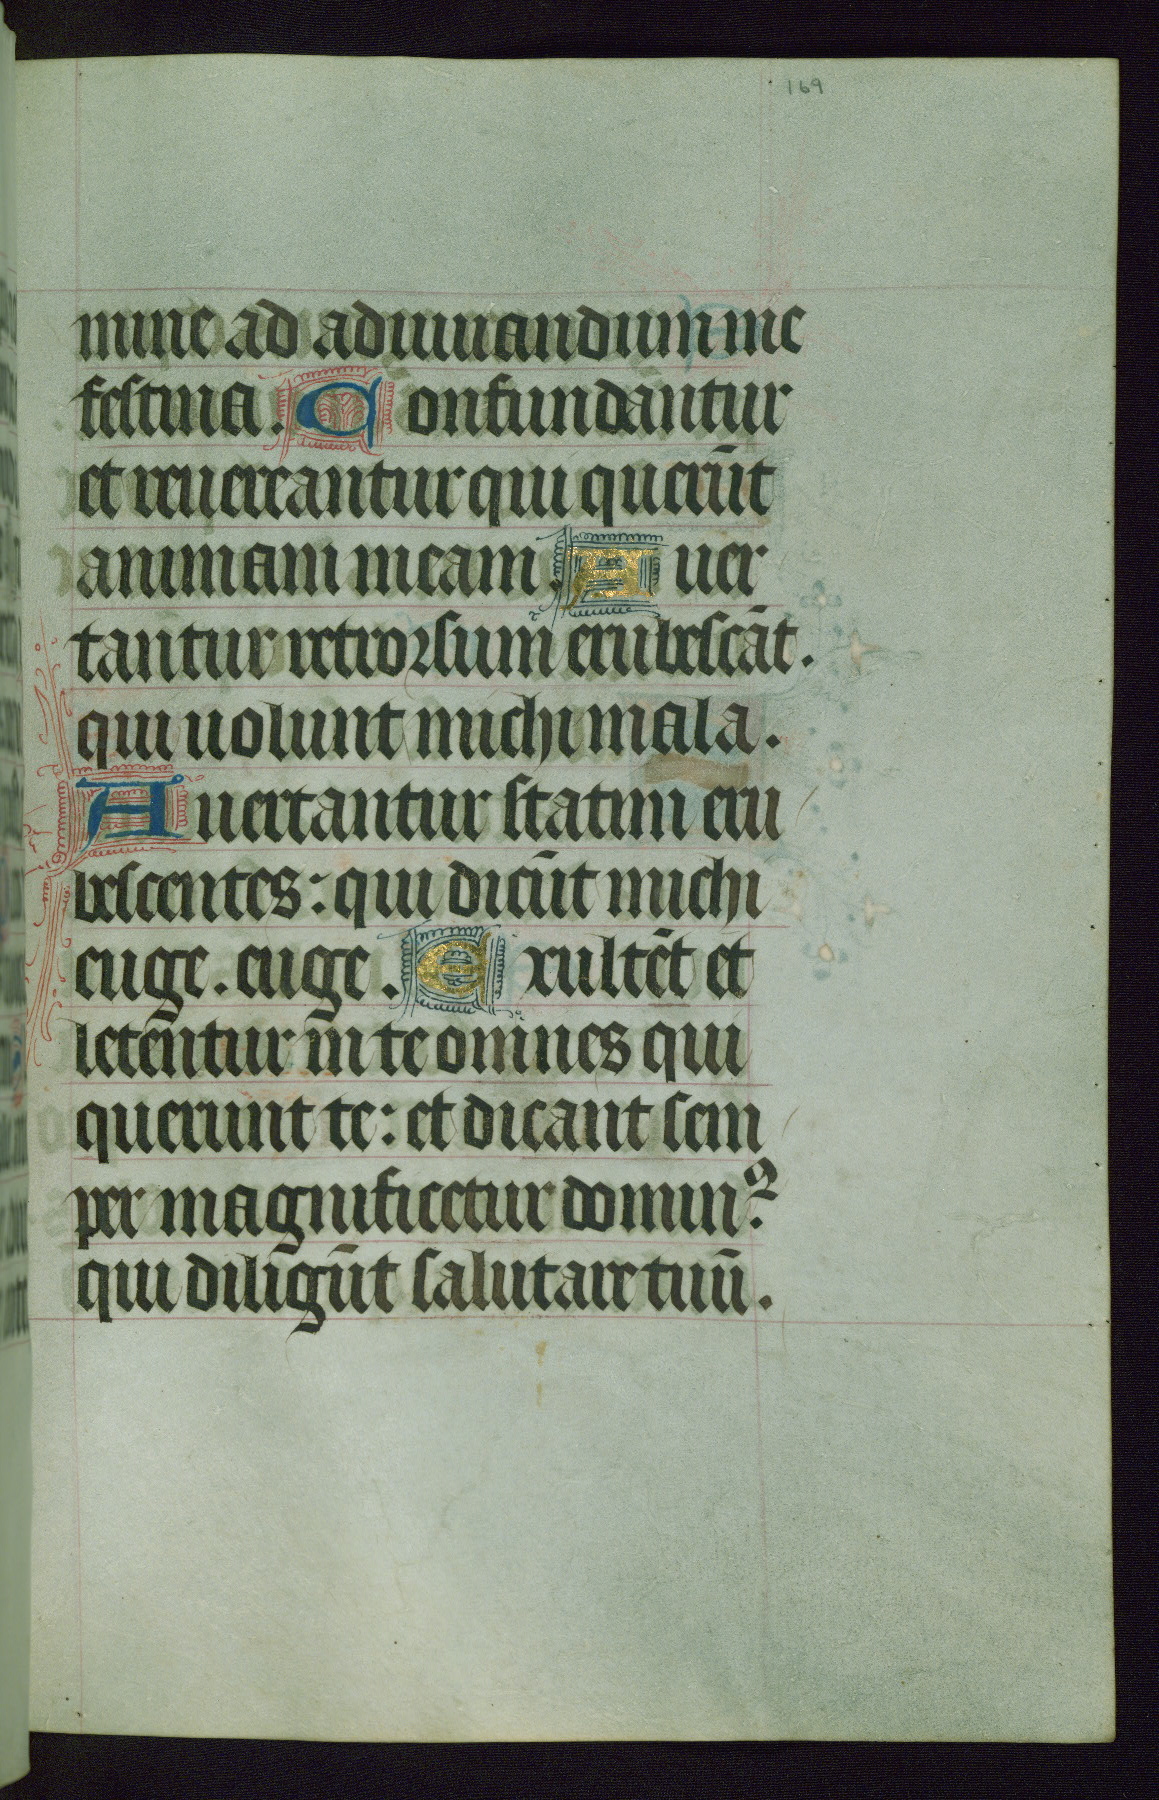 169
mine ad adiuuandum me
festina. Confundantur
et reuereantur qui querūt
animam meam. Auer
tantur retrorsum erubescāt.
qui uolunt michi mala.
Auertantur statim eru
bescentes: qui dicūt michi
euge. euge. Exultēt et
letentur in te omnes qui
querunt te: et dicant sem
per magnificetur dominꝰ.
qui diligūt salutare tuū.